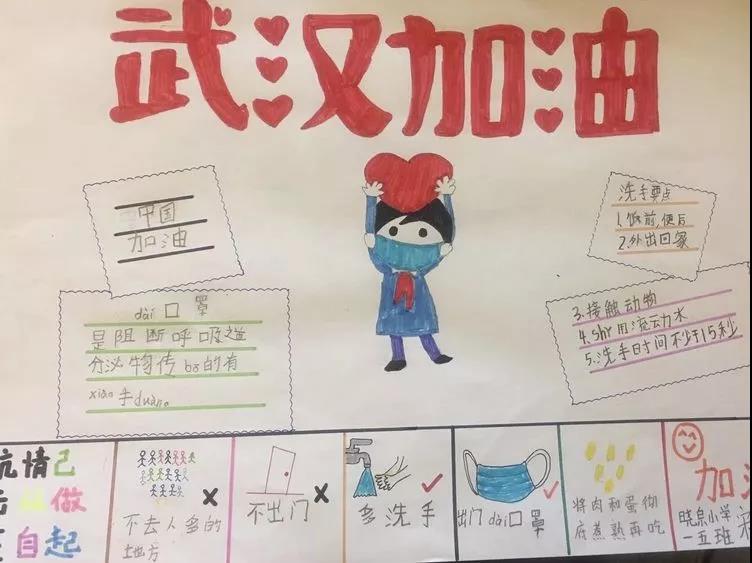 武汉加油
中国
加油
洗手要点
1.饭前,便后
2.外出回家
dài口罩
是阻断呼吸道
分泌物传bō的有
xiào手duàn。
3.接触动物
4.Shǐ用流动水
5.洗手时间不少于15秒
抗情己
做
自起
不去人多的
地方
不出门
多洗手
出门dài口罩
将肉和蛋彻
底煮熟再吃
加
晓泉小学
一五班